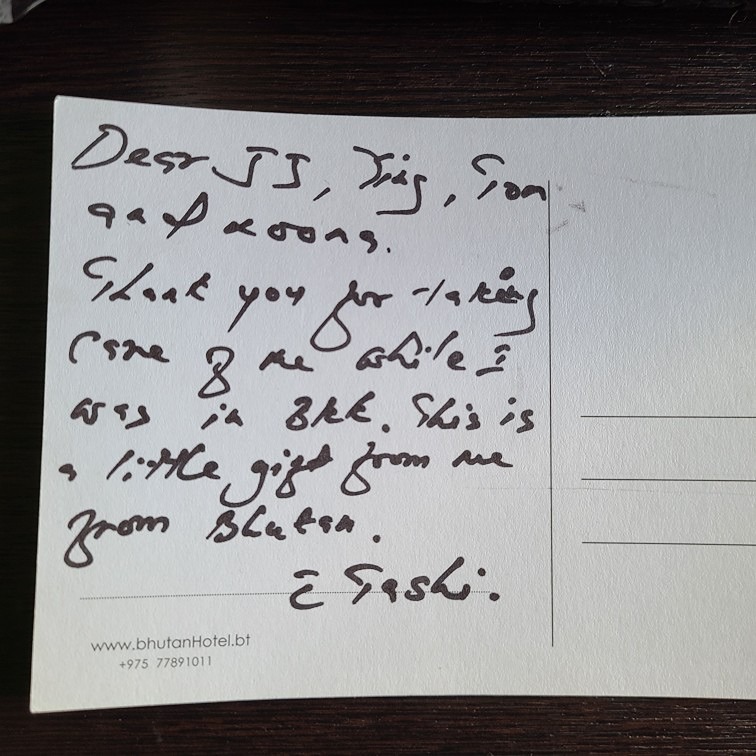 Dear JJ, Ying, Ton
and
Thank you for taking
Care of me while I
was in BKK. This is
a little gift from me
from Bhutan.
Tashi.
www.bhutanHotel.bt
+975 77891011